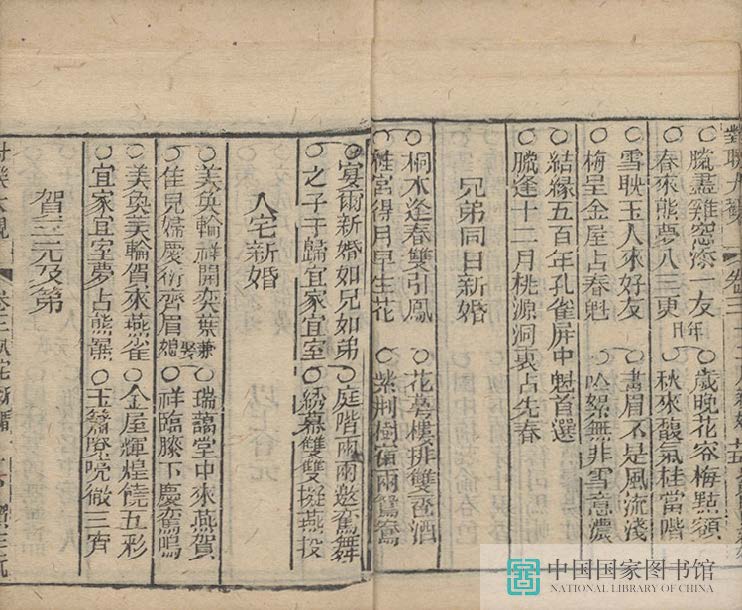 對聯大觀 卷三
臘盡雞窓添一友 歲晚花容梅點額
春來熊夢八三更 秋來馥氣桂當階
雪耽玉人來好友 畫眉不是風流淺
梅呈金屋占春魁 吟絮無非雪意濃
結緣五百年孔雀屏中魁首選
臘逢十二月桃源洞裏占先春
兄弟同日新婚
桐木逢春雙引鳳 花萼樓排雙合酒
蟾宮得月早生花 紫荆樹宿兩鴛鴦
宴爾新婚如兄如弟 庭階兩兩邀鸞舞
之子于歸宜家宜室 綉幕雙雙擬燕投
入宅新婚
美奐輪祥開奕葉 瑞藹堂中來燕賀
佳兒婦慶衍齊眉 兼娶媳 祥臨膝下慶鸞鳴
美奐美輪賀來燕雀 金屋輝煌饒五彩
宜家宜室夢占熊羆 玉簫嘹喨徹三宵
賀三元及第
卷三